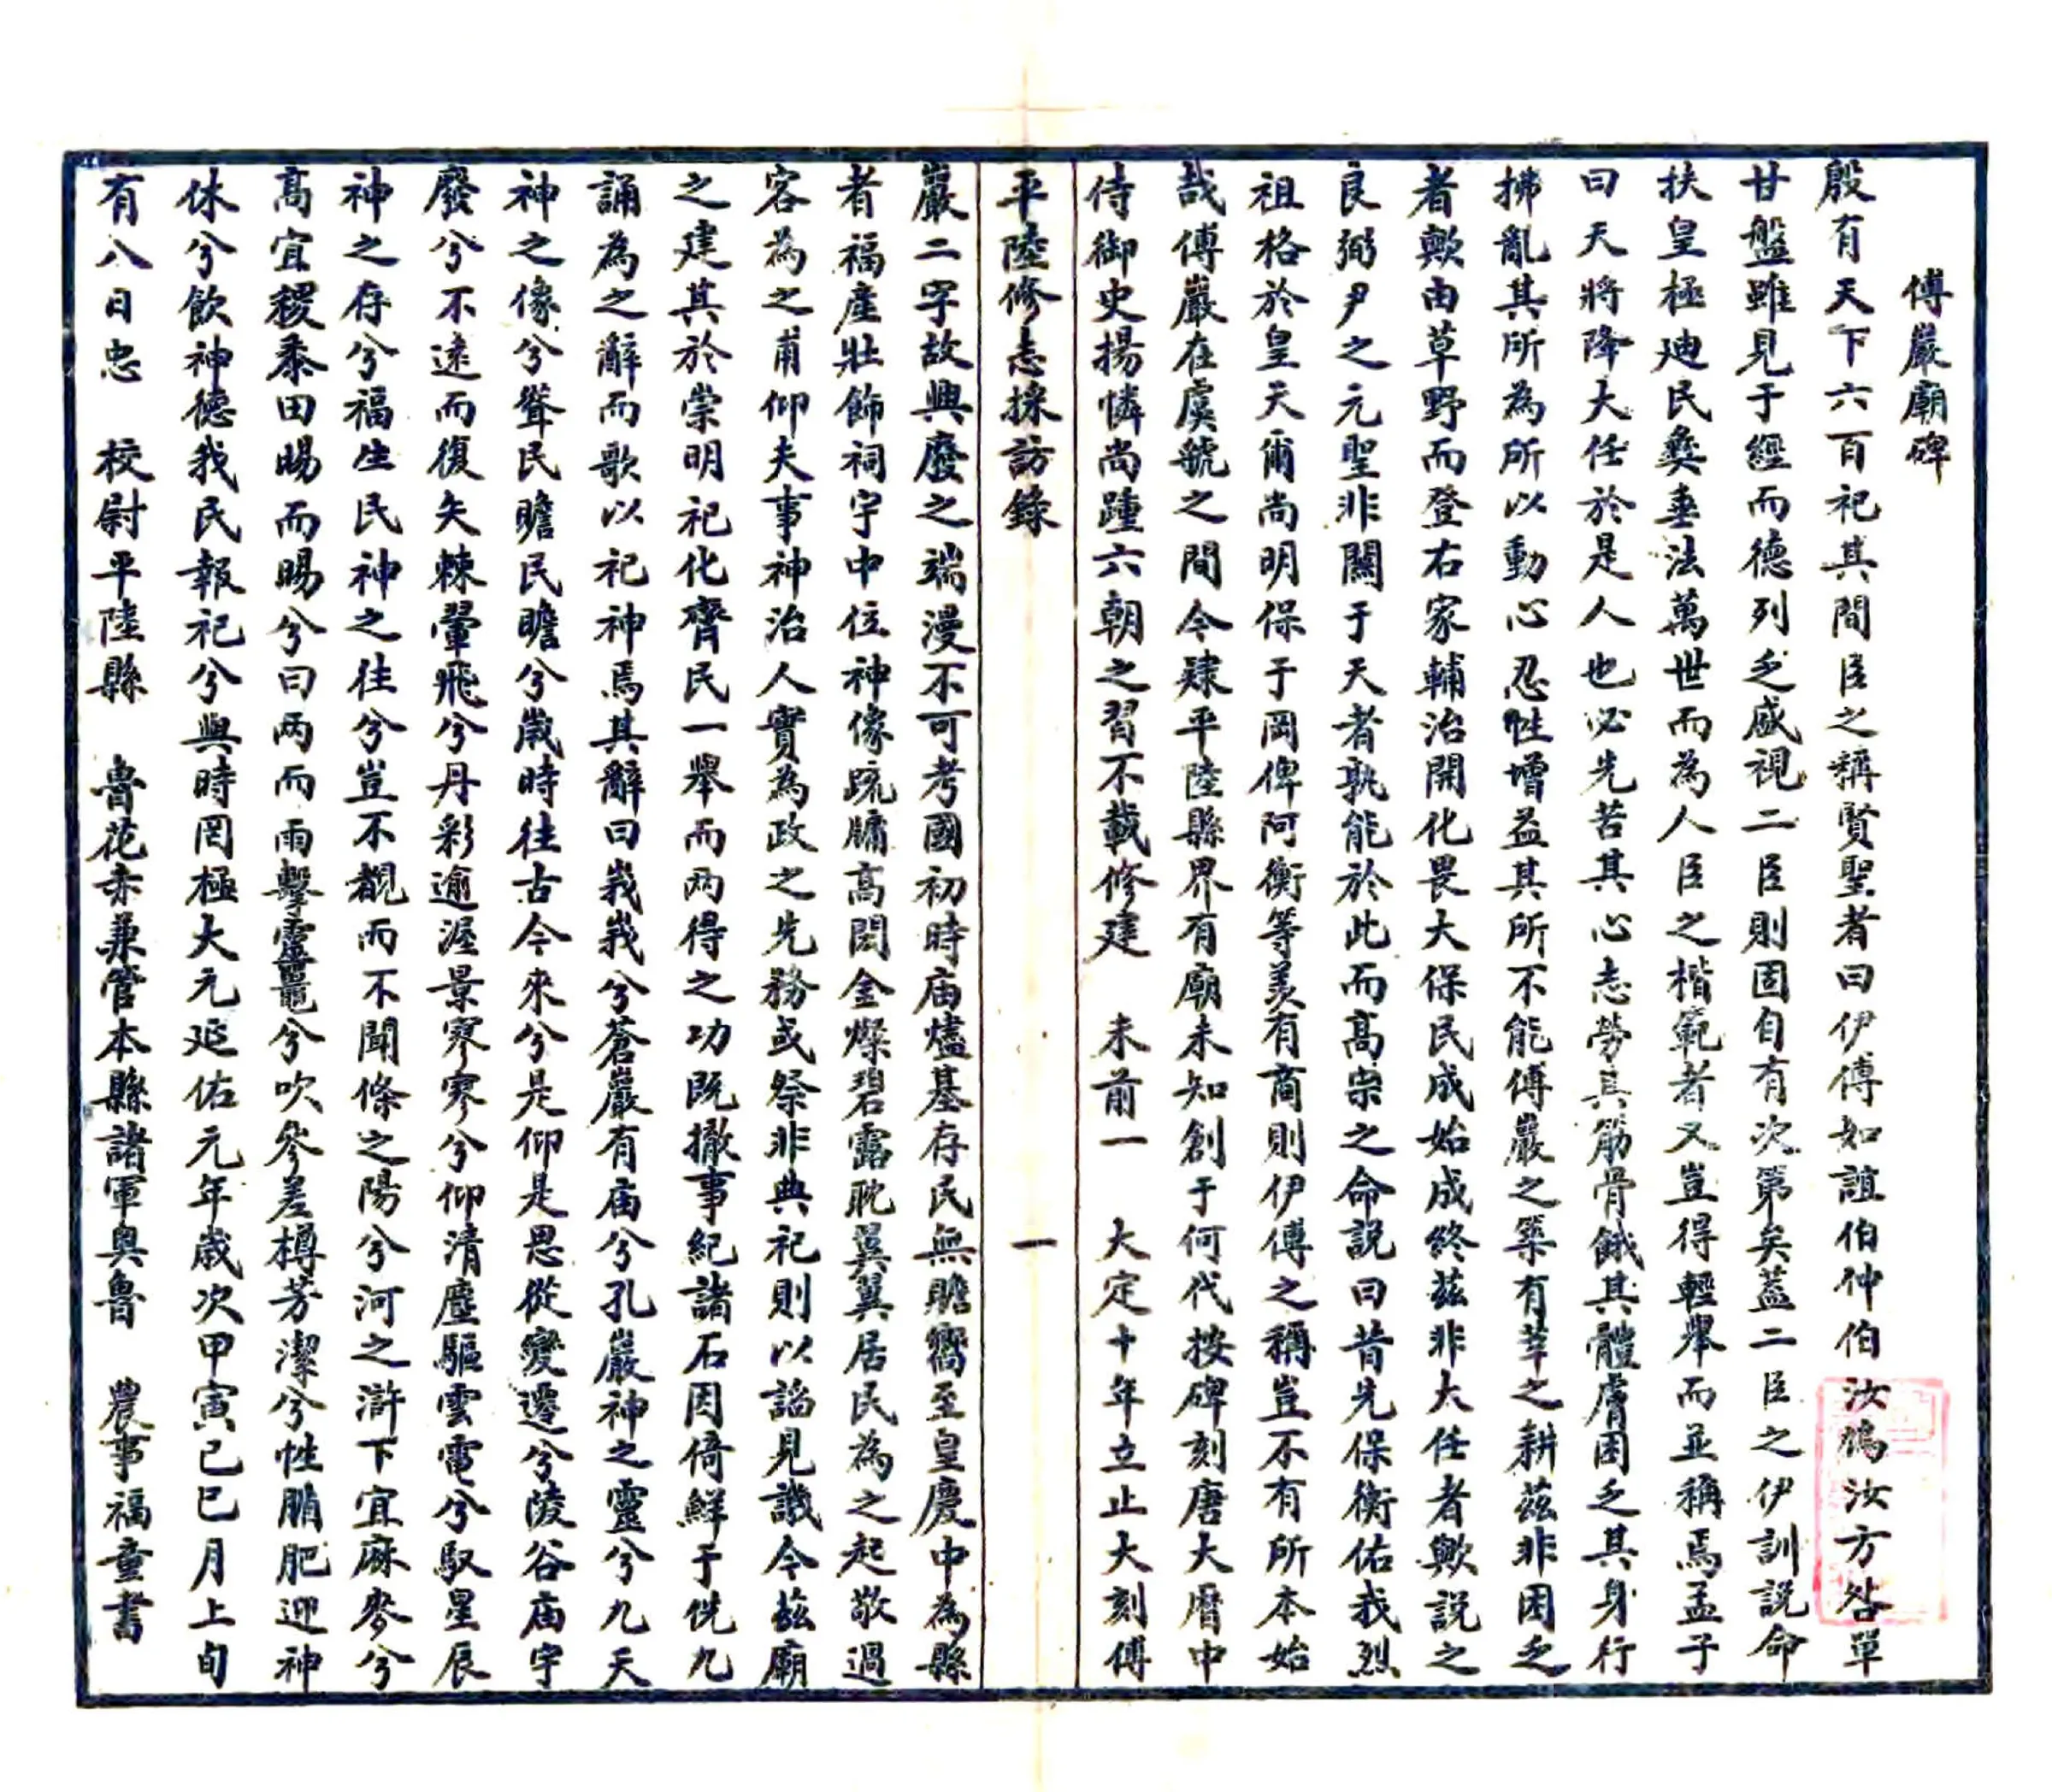 傅巖廟碑
殷有天下六百祀其間臣之稱賢聖者曰伊傅如誼伯仲伯汝鳩汝方咎單
甘盤雖見于經而德列乏盛視二臣則固自有次第矣蓋二臣之伊訓説命
扶皇極迪民彝垂法萬世而為人臣之楷範者又豈得輕舉而並稱焉孟子
曰天將降大任於是人也必先苦其心志勞其筋骨餓其體膚困乏其身行
拂亂其所為所以動心忍性增益其所不能傅巖之築有莘之耕茲非困乏
者歟由草野而登右家輔治開化畏大保民成始成終茲非大任者歟説之
良弼尹之元聖非關于天者孰能於此而高宗之命説曰昔先保衡佑我烈
祖格於皇天爾尚明保于岡俾阿衡等美有商則伊傅之稱豈不有所本始
哉傅巖在虞虢之間今肄平陸縣界有廟未知創于何代按碑刻唐大曆中
侍御史揚憐尚踵六朝之習不載修建　未前一　大定十年立止大刻傅
平陸修志採訪錄　一
巖二字故興廢之端漫不可考國初時庙燼基存民無瞻嚮至皇慶中為縣
者福產壯飾祠宇中位神像疏牖高閎金燦碧露耽翼翼居民為之起敬過
客為之甫仰夫事神治人實為政之先務或祭非典祀則以諂見譏今茲廟
之建其於崇明祀化齊民一舉而两得之功既撤事紀諸石因倚鮮于侁九
誦為之辭而歌以祀神焉其辭曰峩峩兮蒼巖有庙兮孔嚴神之靈兮九天
神之像兮聳民瞻民瞻兮歲時往古今來兮是仰是思從變遷兮陵谷庙宇
廢兮不逺而復矢棘翬飛兮丹彩逾渥景寥寥兮仰清塵驅雲電兮馭星辰
神之存兮福生民神之往兮豈不覩而不聞條之陽兮河之滸下宜麻麥兮
高宜稷黍田暘而暘兮曰两而雨擊靈鼉兮吹參差樽芳潔兮牲腯肥迎神
休兮飲神德我民報祀兮與時罔極大元延佑元年歲次甲寅已巳月上旬
有八日忠　校尉平陸縣　魯花赤兼管本縣諸軍奥魯　農事福童書